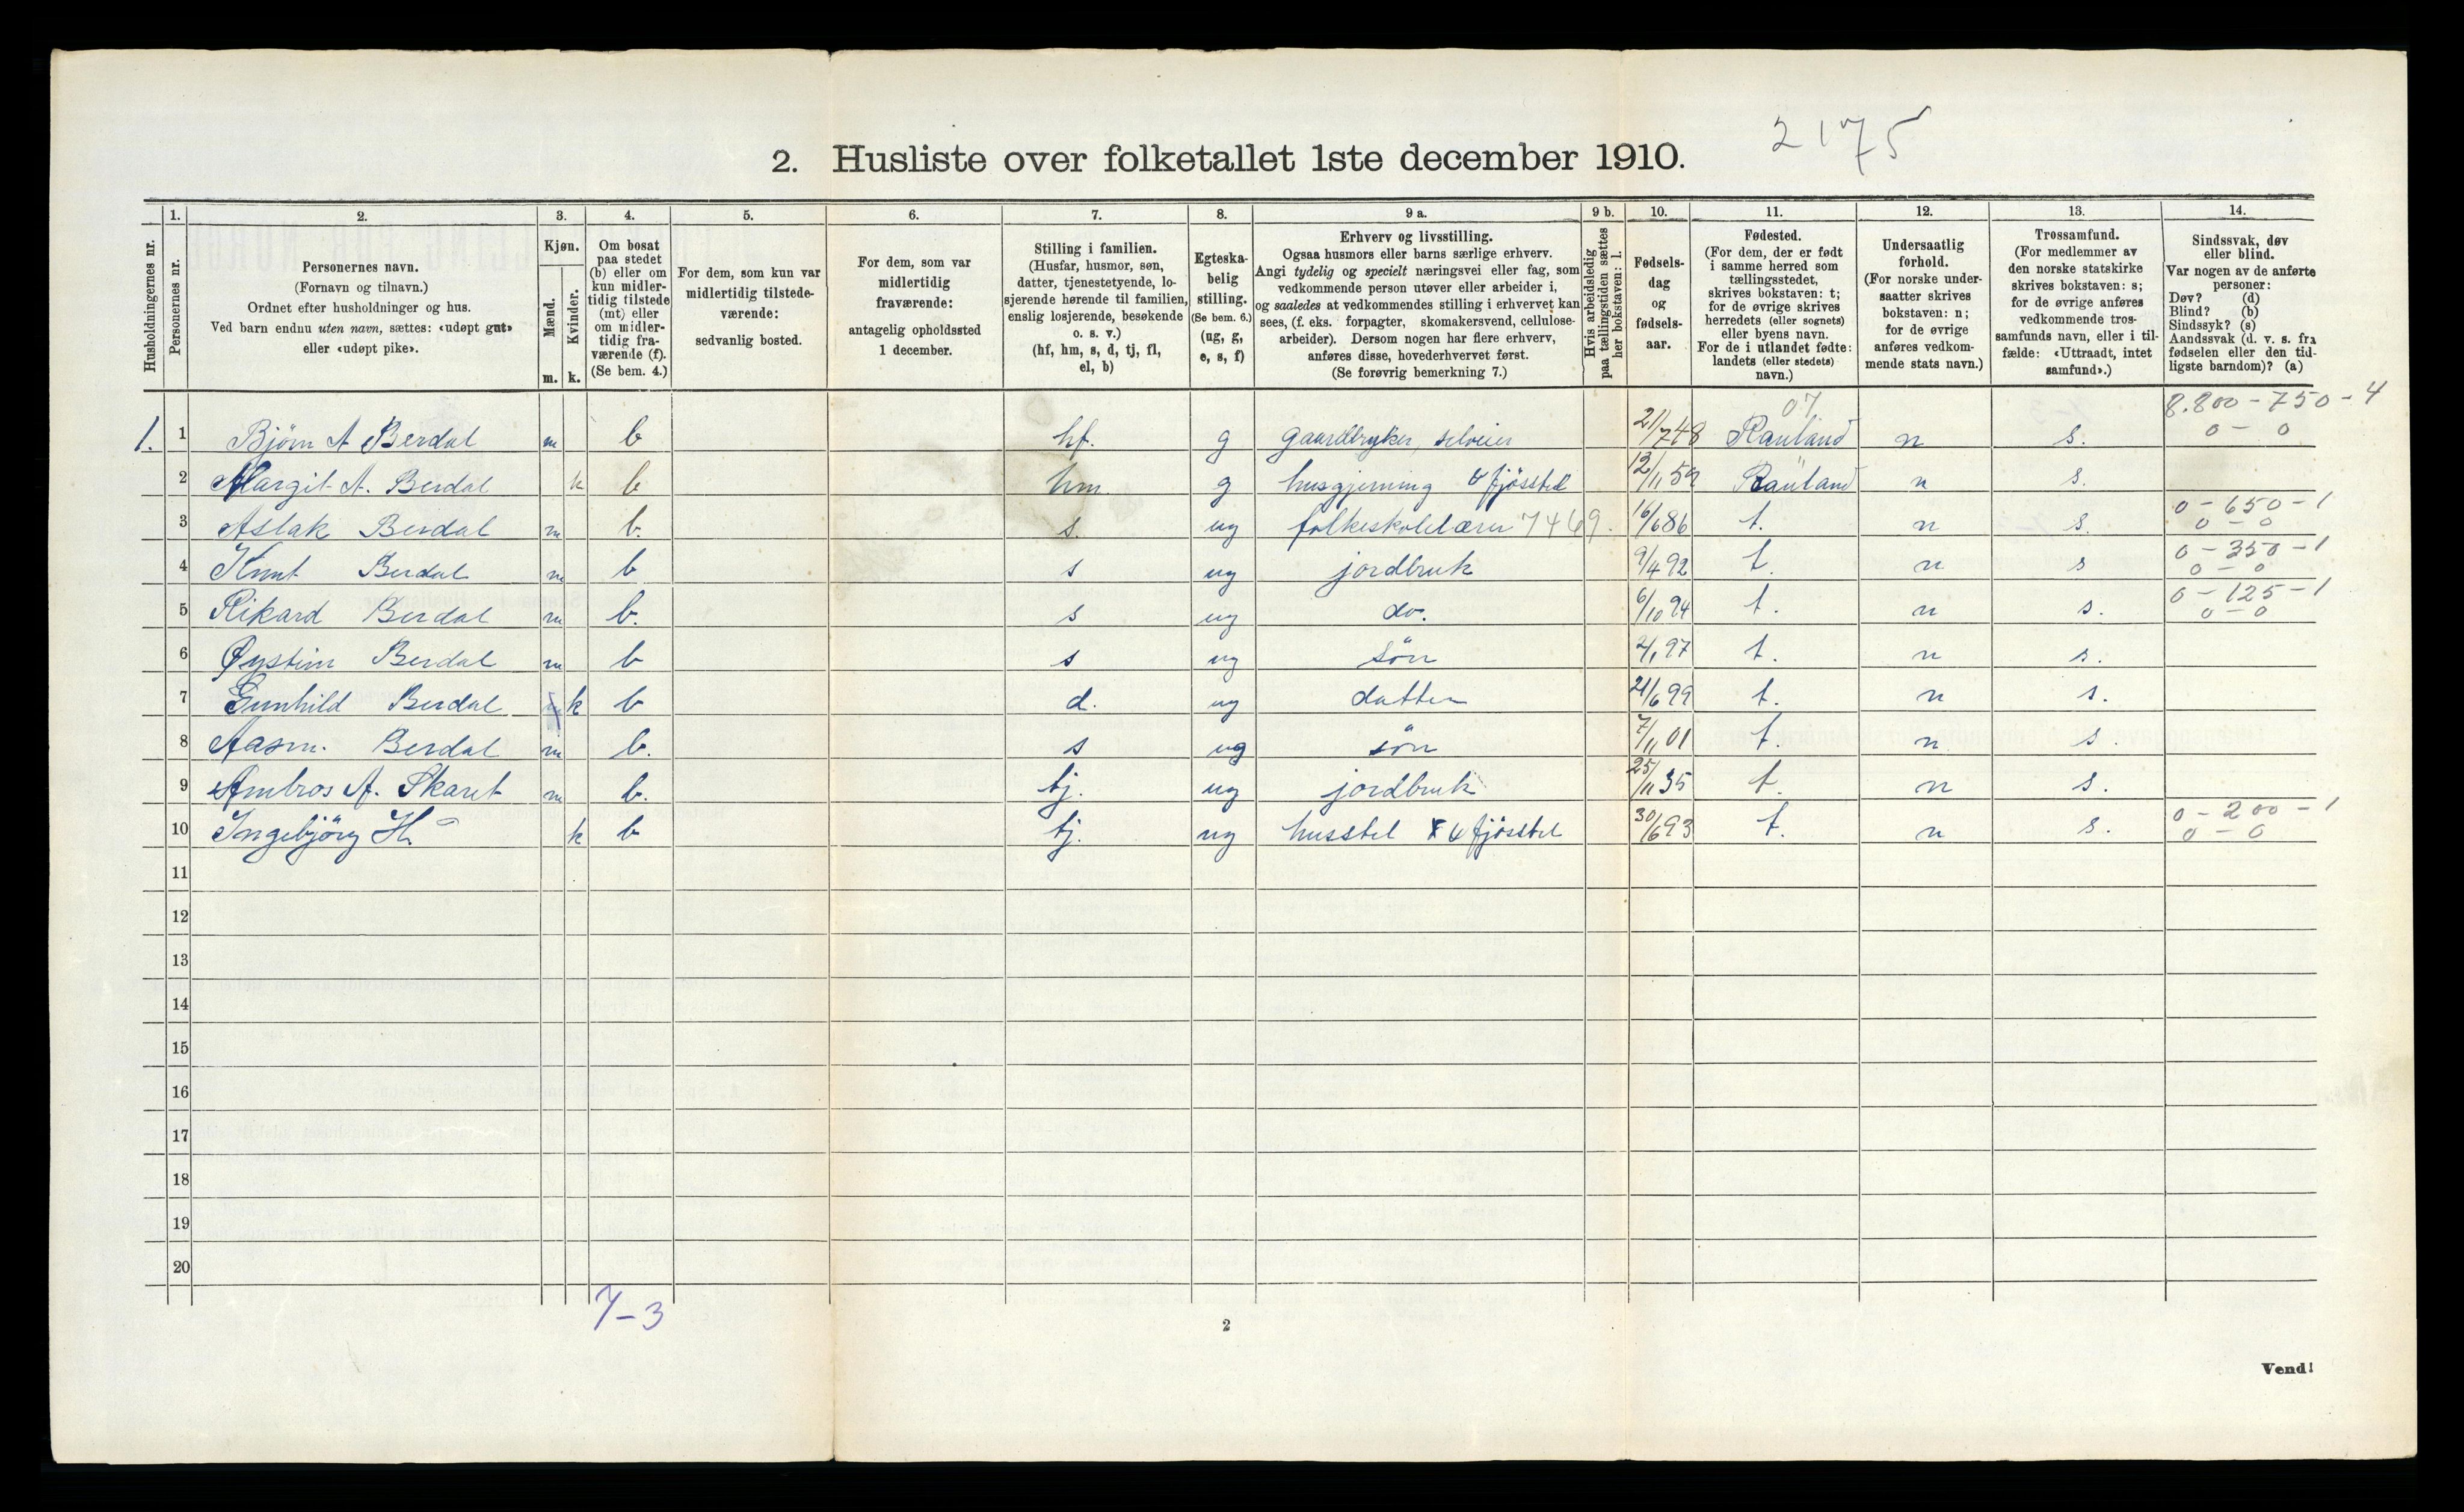 2175
2. Husliste over folketallet 1ste december 1910.
1. 2. 3. 4. 5. 6. 7. 8. 9 a. 9 b. 10. 11. 12. 13. 14.
Husholdningernes nr.
Personernes nr.
Personernes navn.
(Fornavn og tilnavn.)
Ordnet efter husholdninger og hus.
Ved barn endnu uten navn, sættes: «udøpt gut»
eller «udøpt pike».
Kjøn.
Mænd.
Kvinder.
m. k.
Om bosat
paa stedet
(b) eller om
kun midler-
tidig tilstede
(mt) eller
om midler-
tidig fra-
værende (f).
(Se bem. 4.)
For dem, som kun var
midlertidig tilstede-
værende:
sedvanlig bosted.
For dem, som var
midlertidig
fraværende:
antagelig opholdssted
1 december.
Stilling i familien.
(Husfar, husmor, søn,
datter, tjenestetyende, lo-
sjerende hørende til familien,
enslig losjerende, besøkende
o. s. v.)
(hf, hm, s, d, tj, fl,
el, b)
Egteska-
belig
stilling.
(Se bem. 6.)
(ug, g,
e, s, f)
Erhverv og livsstilling.
Ogsaa husmors eller barns særlige erhverv.
Angi tydelig og specielt næringsvei eller fag, som
vedkommende person utøver eller arbeider i,
og saaledes at vedkommendes stilling i erhvervet kan
sees, (f. eks. forpagter, skomakersvend, cellulose-
arbeider). Dersom nogen har flere erhverv,
anføres disse, hovederhvervet først.
(Se forøvrig bemerkning 7.)
Hvis arbeidsledig
paa tællingstiden sættes
her bokstaven: l.
Fødsels-
dag
og
fødsels-
aar.
Fødested.
(For dem, der er født
i samme herred som
tællingsstedet,
skrives bokstaven: t;
for de øvrige skrives
herredets (eller sognets)
eller byens navn.
For de i utlandet fødte:
landets (eller stedets)
navn.)
Undersaatlig
forhold.
(For norske under-
saatter skrives
bokstaven: n;
for de øvrige
anføres vedkom-
mende stats navn.)
Trossamfund.
(For medlemmer av
den norske statskirke
skrives bokstaven: s;
for de øvrige anføres
vedkommende tros-
samfunds navn, eller i til-
fælde: «Uttraadt, intet
samfund».)
Sindssvak, døv
eller blind.
Var nogen av de anførte
personer:
Døv? (d)
Blind? (b)
Sindssyk? (s)
Aandssvak (d. v. s. fra
fødselen eller den tid-
ligste barndom)? (a)
07 8.800 - 750 - 4
1. 1 Bjørn A Berdal m b hf. g gaardbryker, selveier 21/7 48 Rauland n s. 0 - 0
2 Margit A. Berdal k b hm g husgjerning & fjösstel 12/11 59 Rauland n s.
0 - 650 - 1
3 Aslak Berdal m b. s. ug folkeskolelærer 7469. 16/6 86 t. n s. 0 - 0
0 - 350 - 1
4 Knut Berdal m b s ug jordbruk 9/4 92 t. n s 0 - 0
0 - 125 - 1
5 Rikard Berdal m b. s ug do. 6/10 94 t. n s. 0 - 0
6 Øystein Berdal m b s ug sön 2/1 97 t. n s.
7 Gunhild Berdal k b d. ug datter 21/6 99 t. n s.
8 Aasm. Berdal m b. s ug sön 7/11 01 t. n s.
9 Ambros A. Skaret m b. tj. ug jordbruk 25/11 35 t. n s.
0 - 200 - 1
10 Ingebjörg H. k b tj. ug husstel & fjösstel 30/6 93 t. n s. 0 - 0
11
12
13
14
15
16
17
18
19
20
7 - 3
2
Vend!